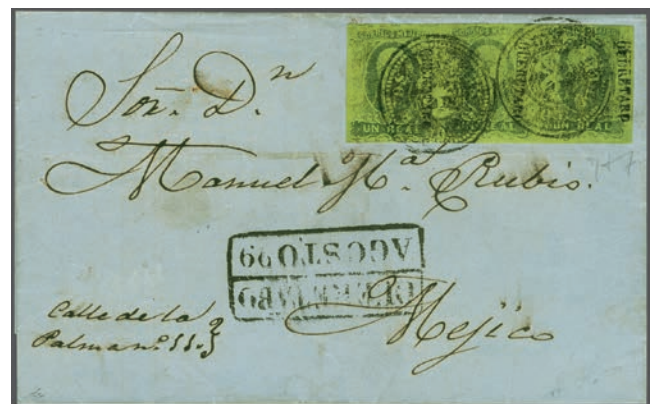 UN REAL UN REAL
QUERETARO
QUERETARO
Sōr. Dⁿ
Manuel Mª. Rubio.
QUERETARO
AGOSTO
Mejico
Calle de la
Palma nº 11.